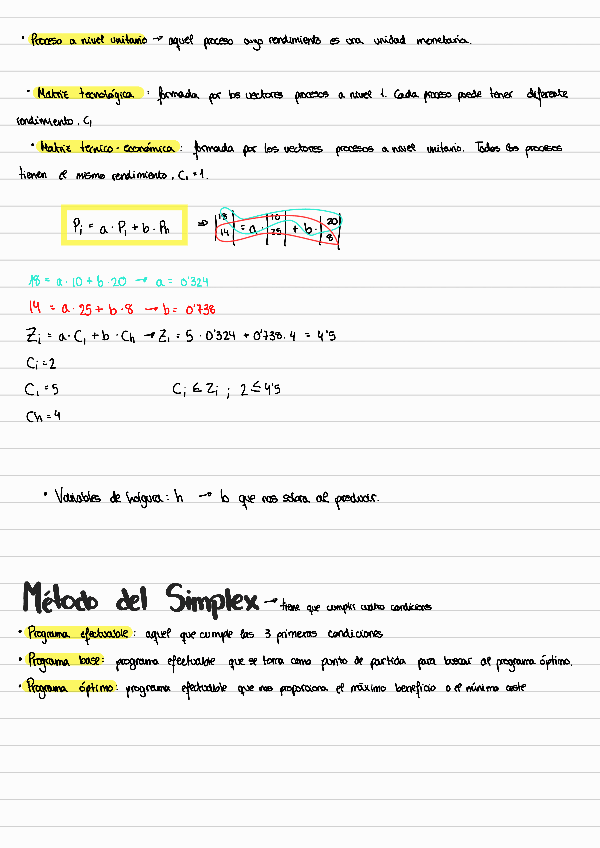 • Proceso a nivel unitario → aquel proceso cuyo rendimiento es una unidad monetaria.
• Matriz tecnológica: formada por los vectores procesos a nivel 1. Cada proceso puede tener diferente
rendimiento, C₁
• Matriz técnico-económica: formada por los vectores procesos a nivel unitario. Todos los procesos
tienen el mismo rendimiento, C₁ = 1.
Pi = a · P₁ + b · Ph ⇒ |18 14| = a · |10 25| + b · |20 8|
18 = a · 10 + b · 20 → a = 0'324
14 = a · 25 + b · 8 → b = 0'738
Zi = a · C₁ + b · Ch → Z₁ = 5 · 0'324 + 0'738 · 4 = 4'5
Ci = 2
C₁ = 5 Ci ≤ Zi ; 2 ≤ 4'5
Ch = 4
• Variables de holgura: h → lo que nos sobra al producir.
Método del Simplex → tiene que cumplir cuatro condiciones
• Programa efectuable: aquel que cumple las 3 primeras condiciones
• Programa base: programa efectuable que se toma como punto de partida para buscar al programa óptimo.
• Programa óptimo: programa efectuable que nos proporciona el máximo beneficio o el mínimo coste